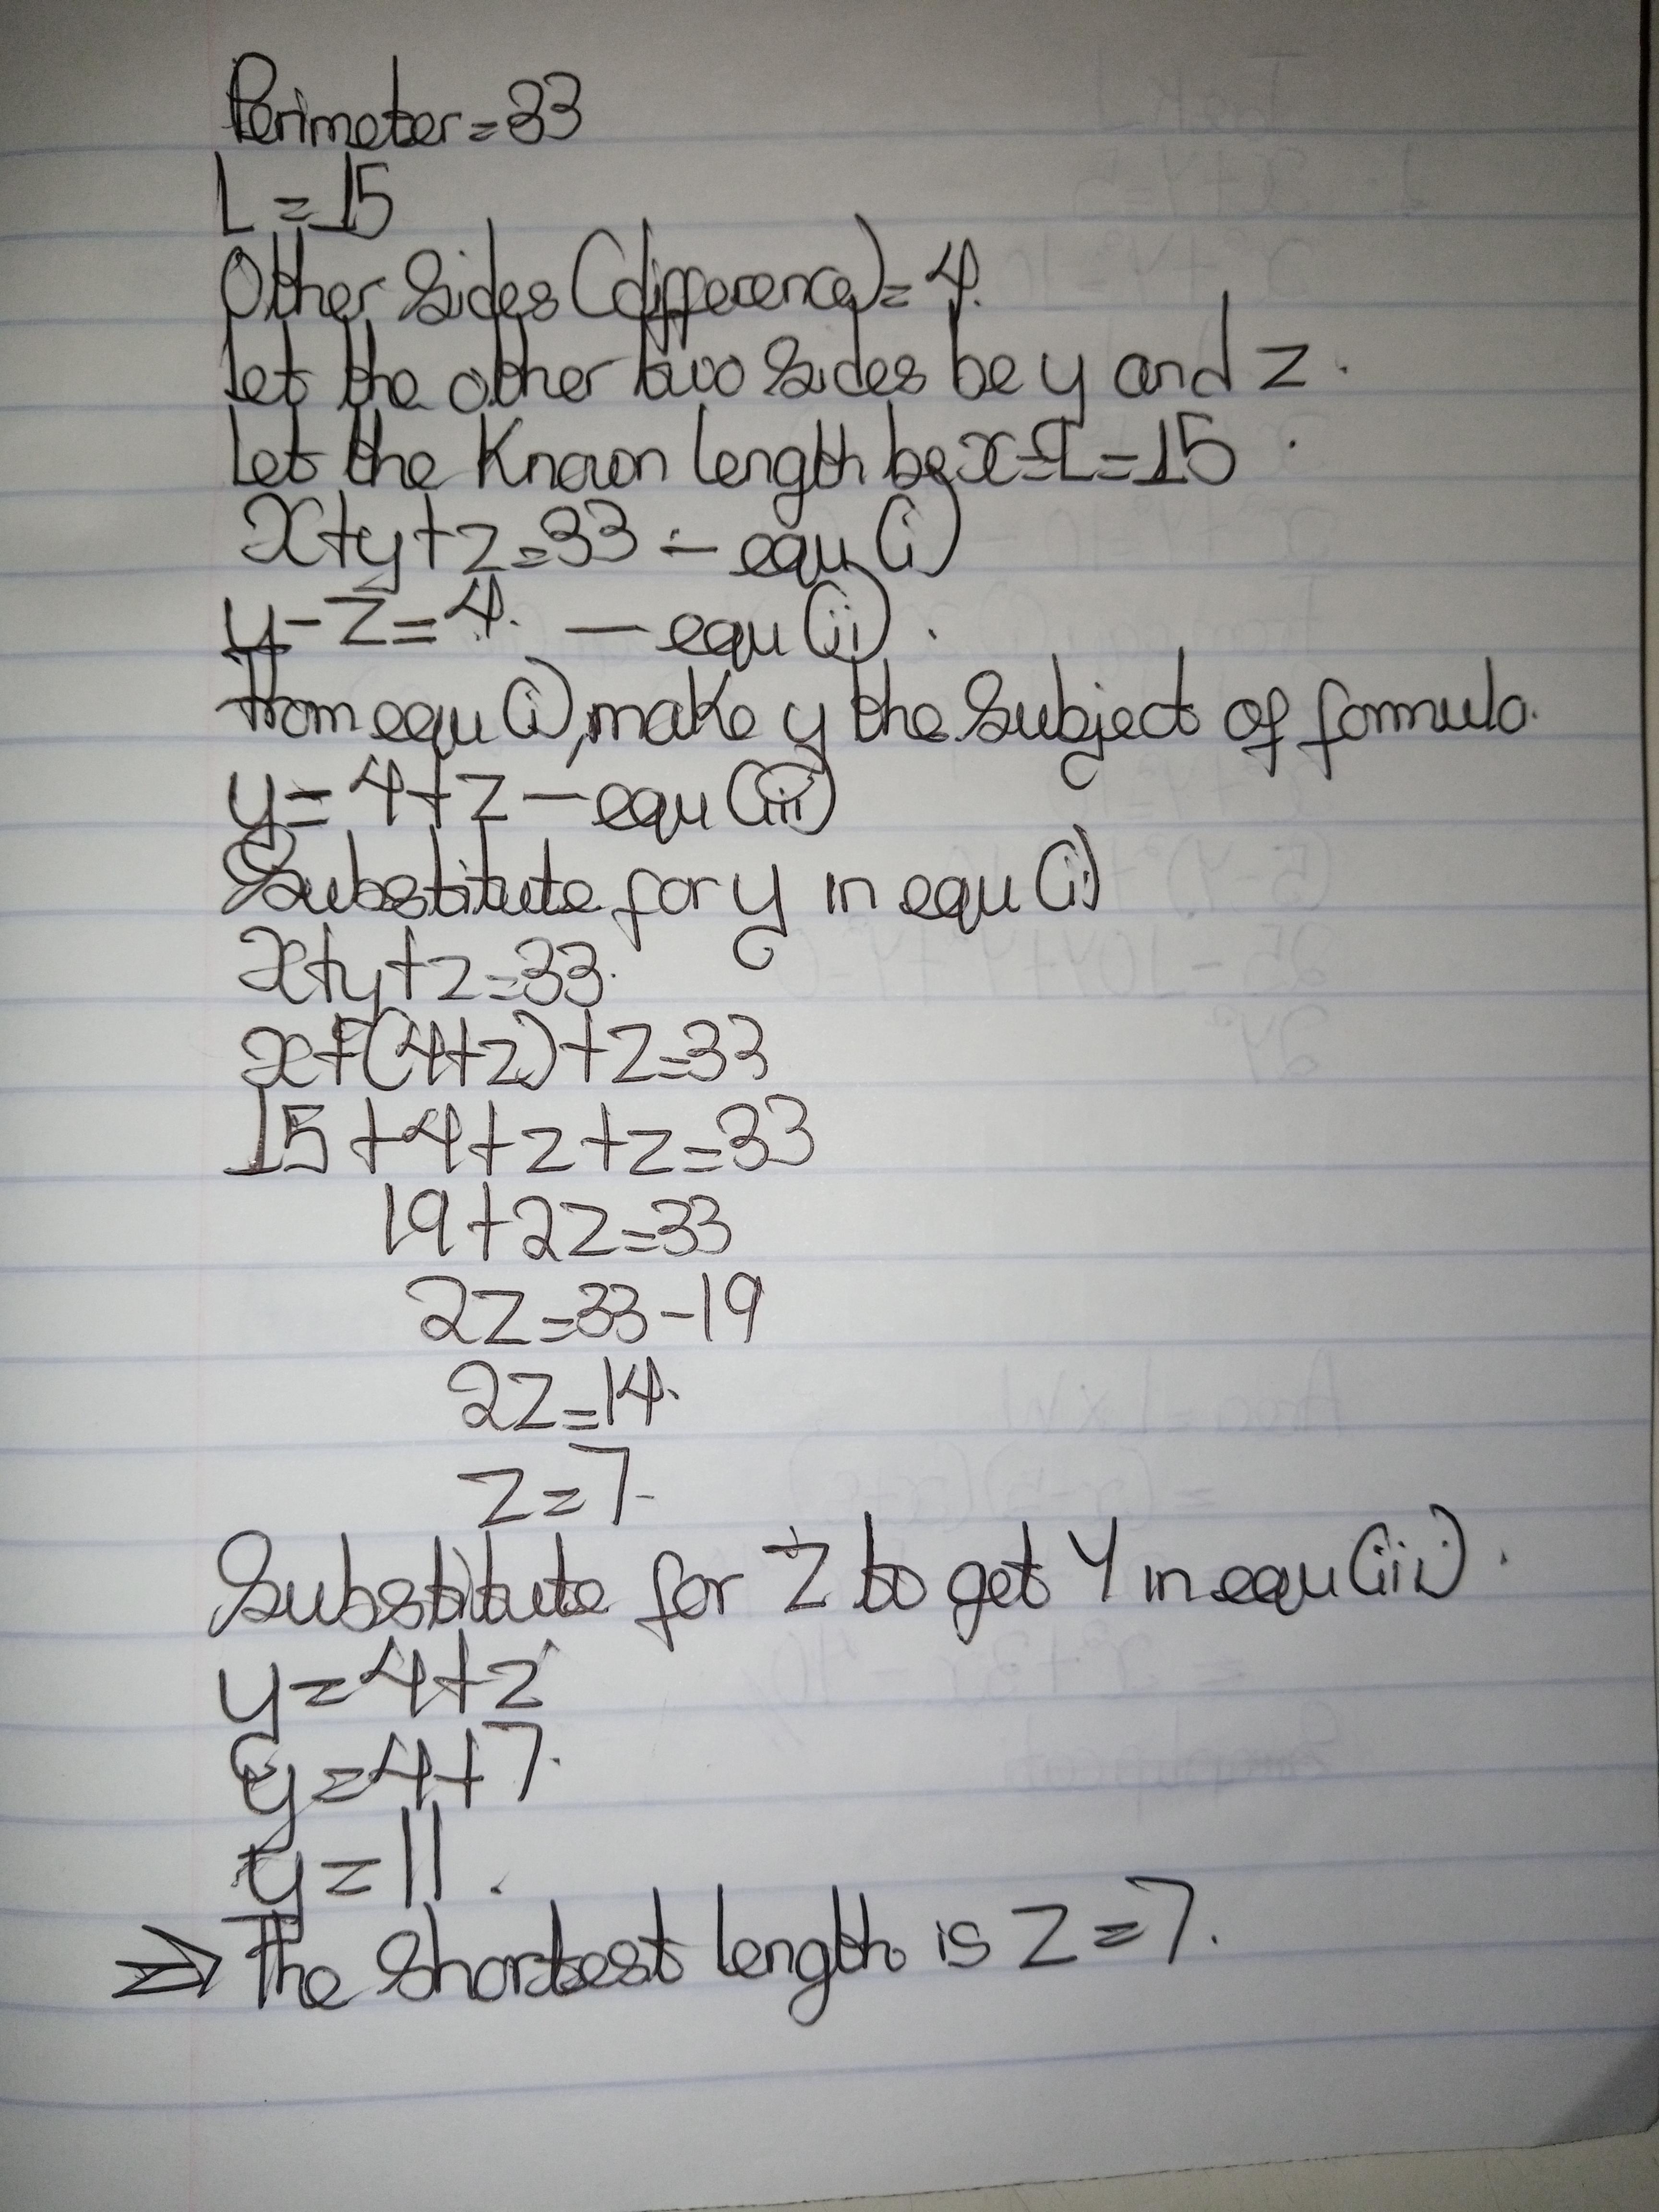 Perimeter=33
L=15
Other sides (difference)=4.
Let the other two sides be y and z.
Let the known length be x=L=15.
x+y+z=33 - equ (i)
y-z=4. - equ (ii).
From equ (ii), make y the subject of formula.
y=4+z - equ (iii)
Substitute for y in equ (i)
x+y+z=33.
x+(4+z)+z=33
15+4+z+z=33
19+2z=33
2z=33-19
2z=14.
z=7.
Substitute for z to get y in equ (iii).
y=4+z
y=4+7.
y=11.
⇒ The shortest length is z=7.